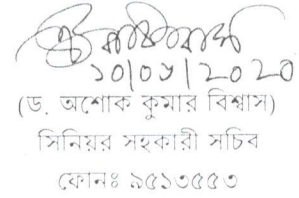 ১০/০৬/২০২০
(ড. অশোক কুমার বিশ্বাস)
সিনিয়র সহকারী সচিব
ফোনঃ ৯৫১৩৫৫৩